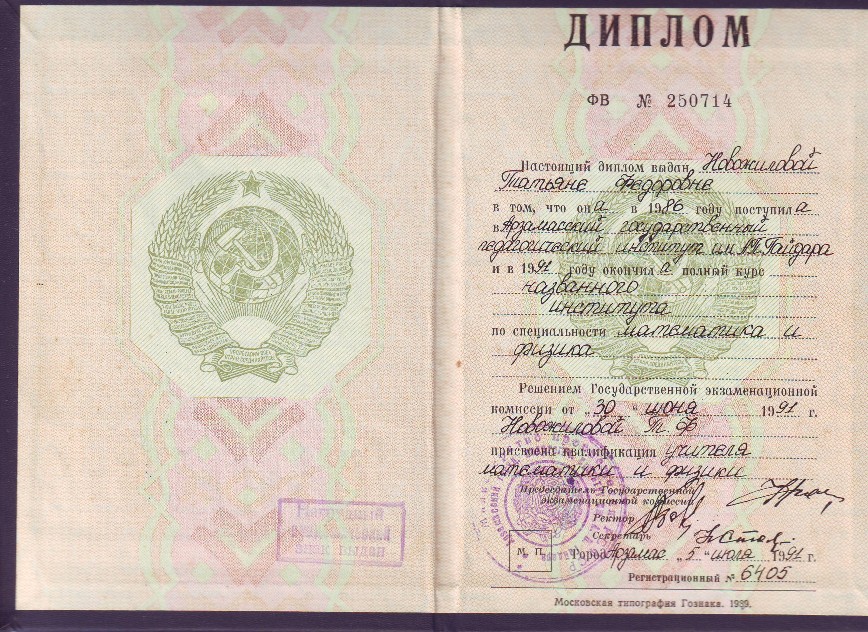 ДИПЛОМ
ФВ № 250714
Настоящий диплом выдан Новожиловой
Татьяне Федоровне
в том, что она в 1986 году поступила
в Арзамасский государственный
педагогический институт им. А.П. Гайдара
и в 1991 году окончила полный курс
названного
института
по специальности математика и
физика
Решением Государственной экзаменационной
комиссии от „30“ июня 1991 г.
Новожиловой Т. Ф.
присвоена квалификация учителя
математики и физики
Председатель Государственной
экзаменационной комиссии
Ректор
Секретарь
М. П.
Город Арзамас „5“ июля 1991 г.
Регистрационный № 6405
Московская типография Гознака. 1989.